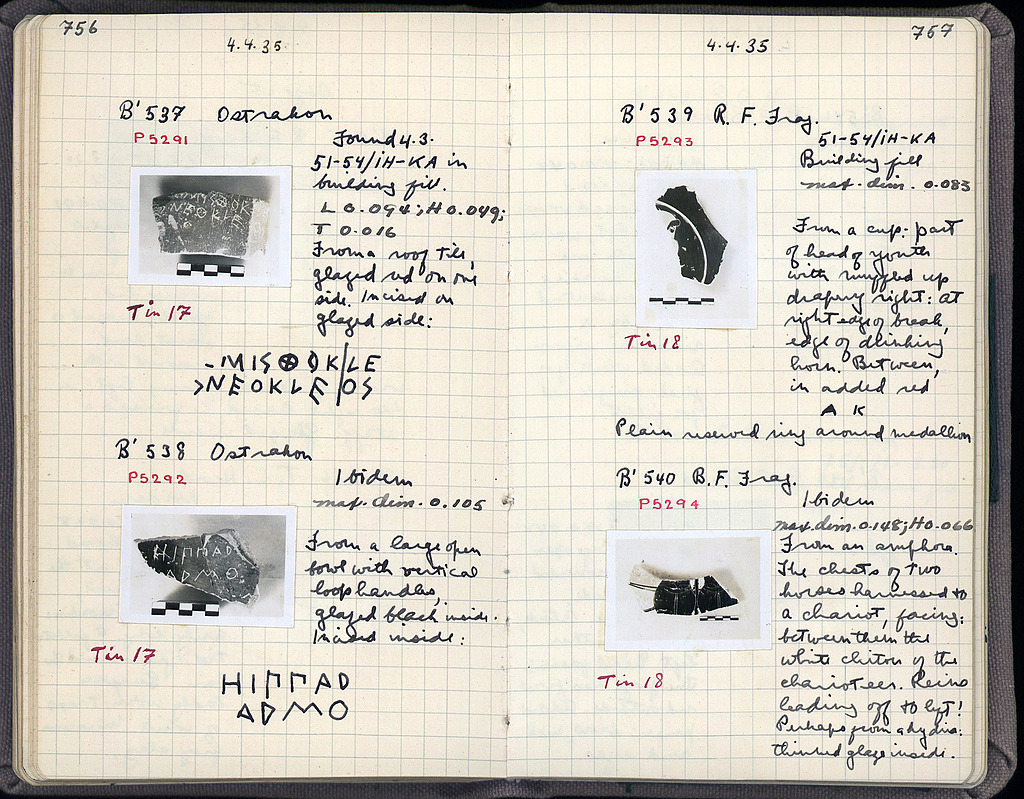 756
4.4.35
B' 537 Ostrakon
P5291
Found 4.3.
51-54/ΙΗ-ΚΑ in
building fill.
L 0.094; H 0.049;
T 0.016
From a roof tile,
glazed red on one
side. Incised on
glazed side:
Tin 17
-MIS⊗OKLE
>NEOKLEOS
B' 538 Ostrakon
P5292
Ibidem
max. dim. 0.105
From a large open
bowl with vertical
loop handles,
glazed black inside.
Incised inside:
Tin 17
ΗΙΠΠΑD
ΑDΜΟ
757
4.4.35
B' 539 R. F. Frag.
P5293
51-54/ΙΗ-ΚΑ
Building fill
max. dim. 0.083
From a cup: part
of head of youth
with muffled up
drapery right: at
right edge of break,
edge of drinking
horn. Between,
in added red
Α Κ
Plain reserved ring around medallion
Tin 18
B' 540 B. F. Frag.
P5294
Ibidem
max. dim. 0.148; H 0.066
From an amphora.
The chests of two
horses harnessed to
a chariot, facing:
between them the
white chiton of the
charioteer. Reins
leading off to left!
Perhaps from a hydria:
thinned glaze inside.
Tin 18